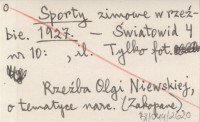 Sporty zimowe w rzeź-
bie. 1927. – Światowid 4
nr 10: , il. Tylko fot.
Rzeźba Olgi Niewskiej,
o tematyce narc. (Zakopane)